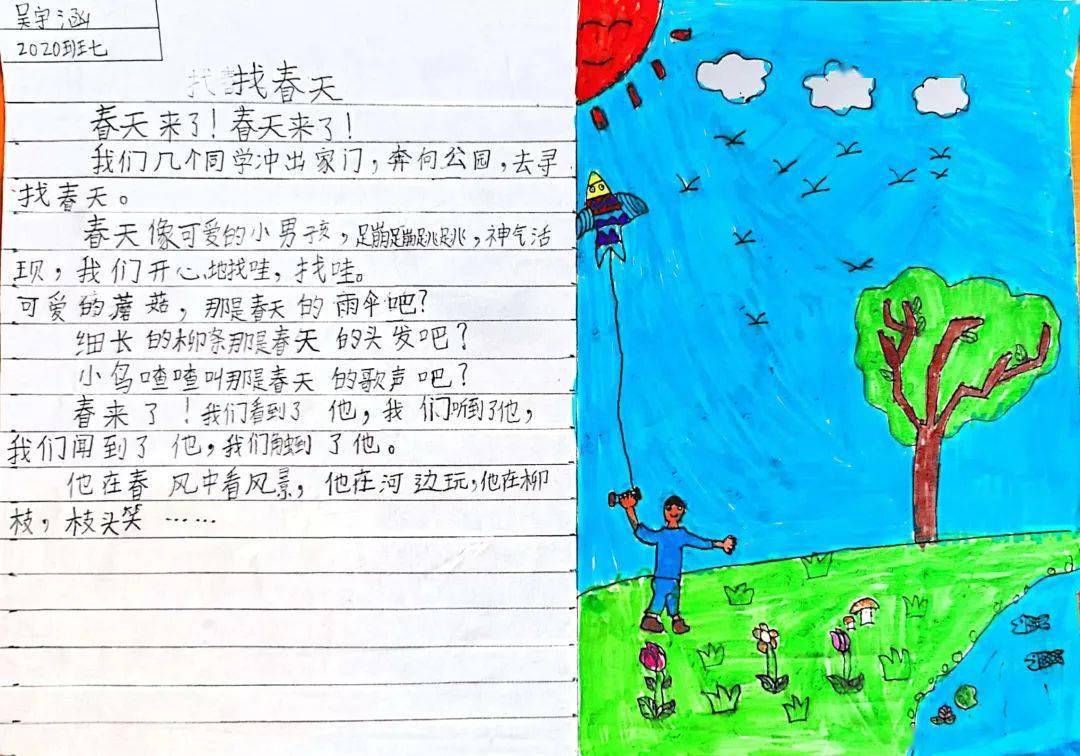 吴宇涵
2020级七
找春天
春天来了！春天来了！
我们几个同学冲出家门，奔向公园，去寻
找春天。
春天像可爱的小男孩，蹦蹦跳跳，神气活
现，我们开心地找哇，找哇。
可爱的蘑菇，那是春天的雨伞吧？
细长的柳条那是春天的头发吧？
小鸟喳喳叫那是春天的歌声吧？
春来了！我们看到了他，我们听到了他，
我们闻到了他，我们触到了他。
他在春风中看风景，他在河边玩，他在柳
枝，枝头笑……